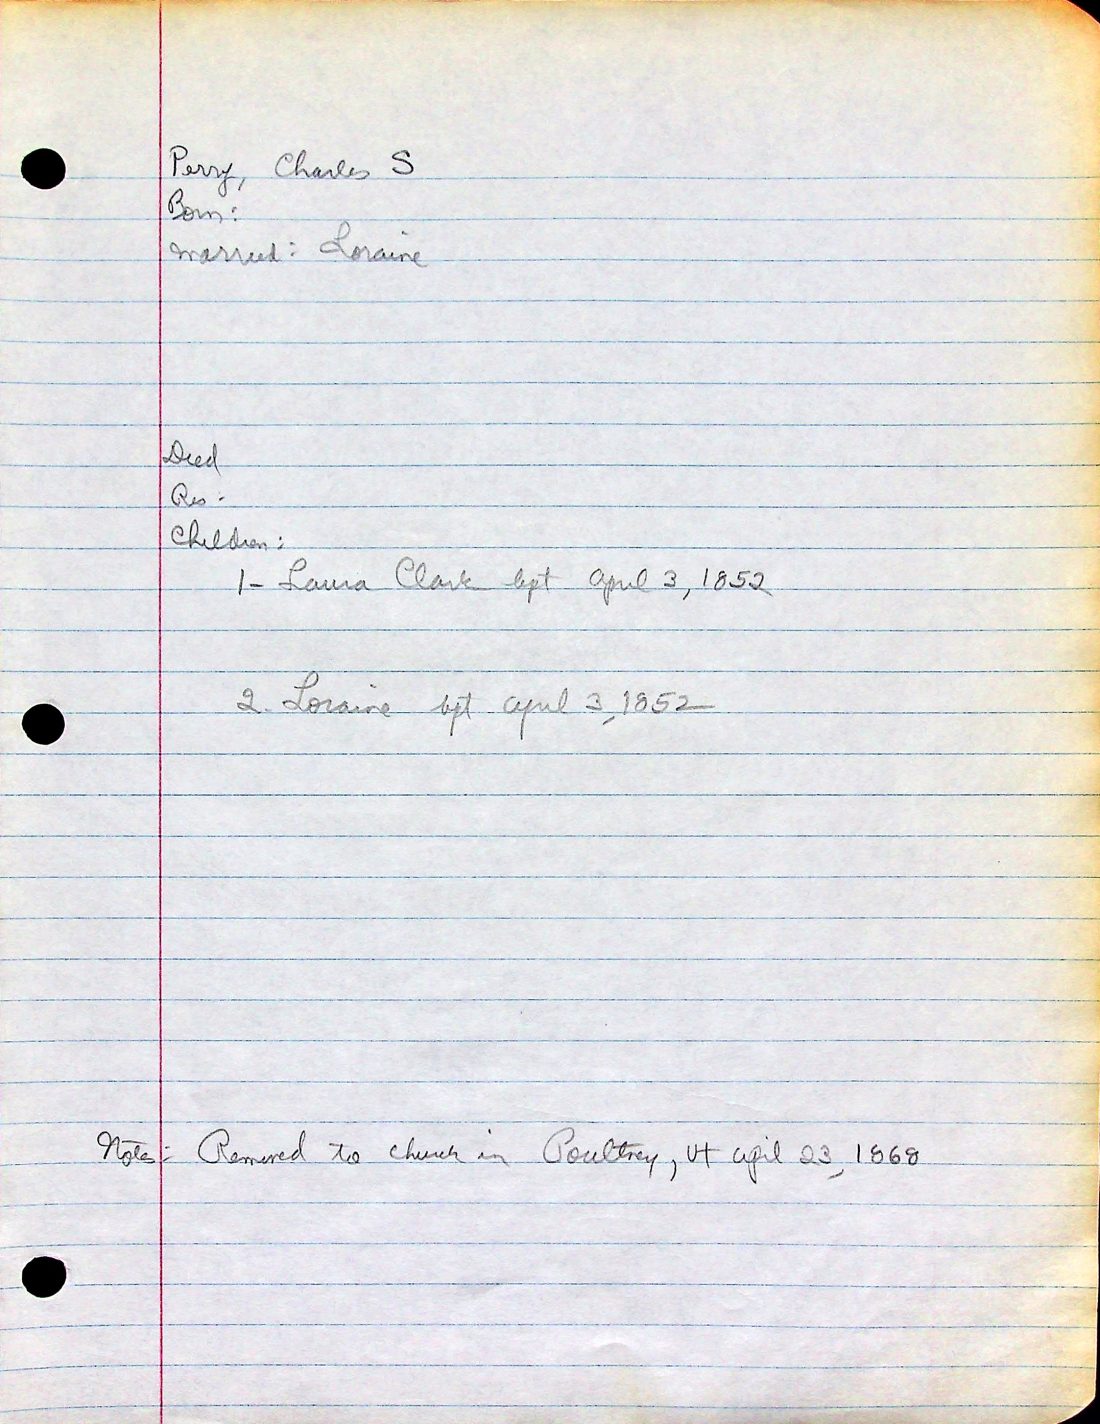 Perry, Charles S
Born:
Married: Loraine
Died
Res:
Children:
1- Laura Clark bpt April 3, 1852
2- Loraine bpt April 3, 1852
Notes: Removed to church in Poultney, Vt April 23, 1868